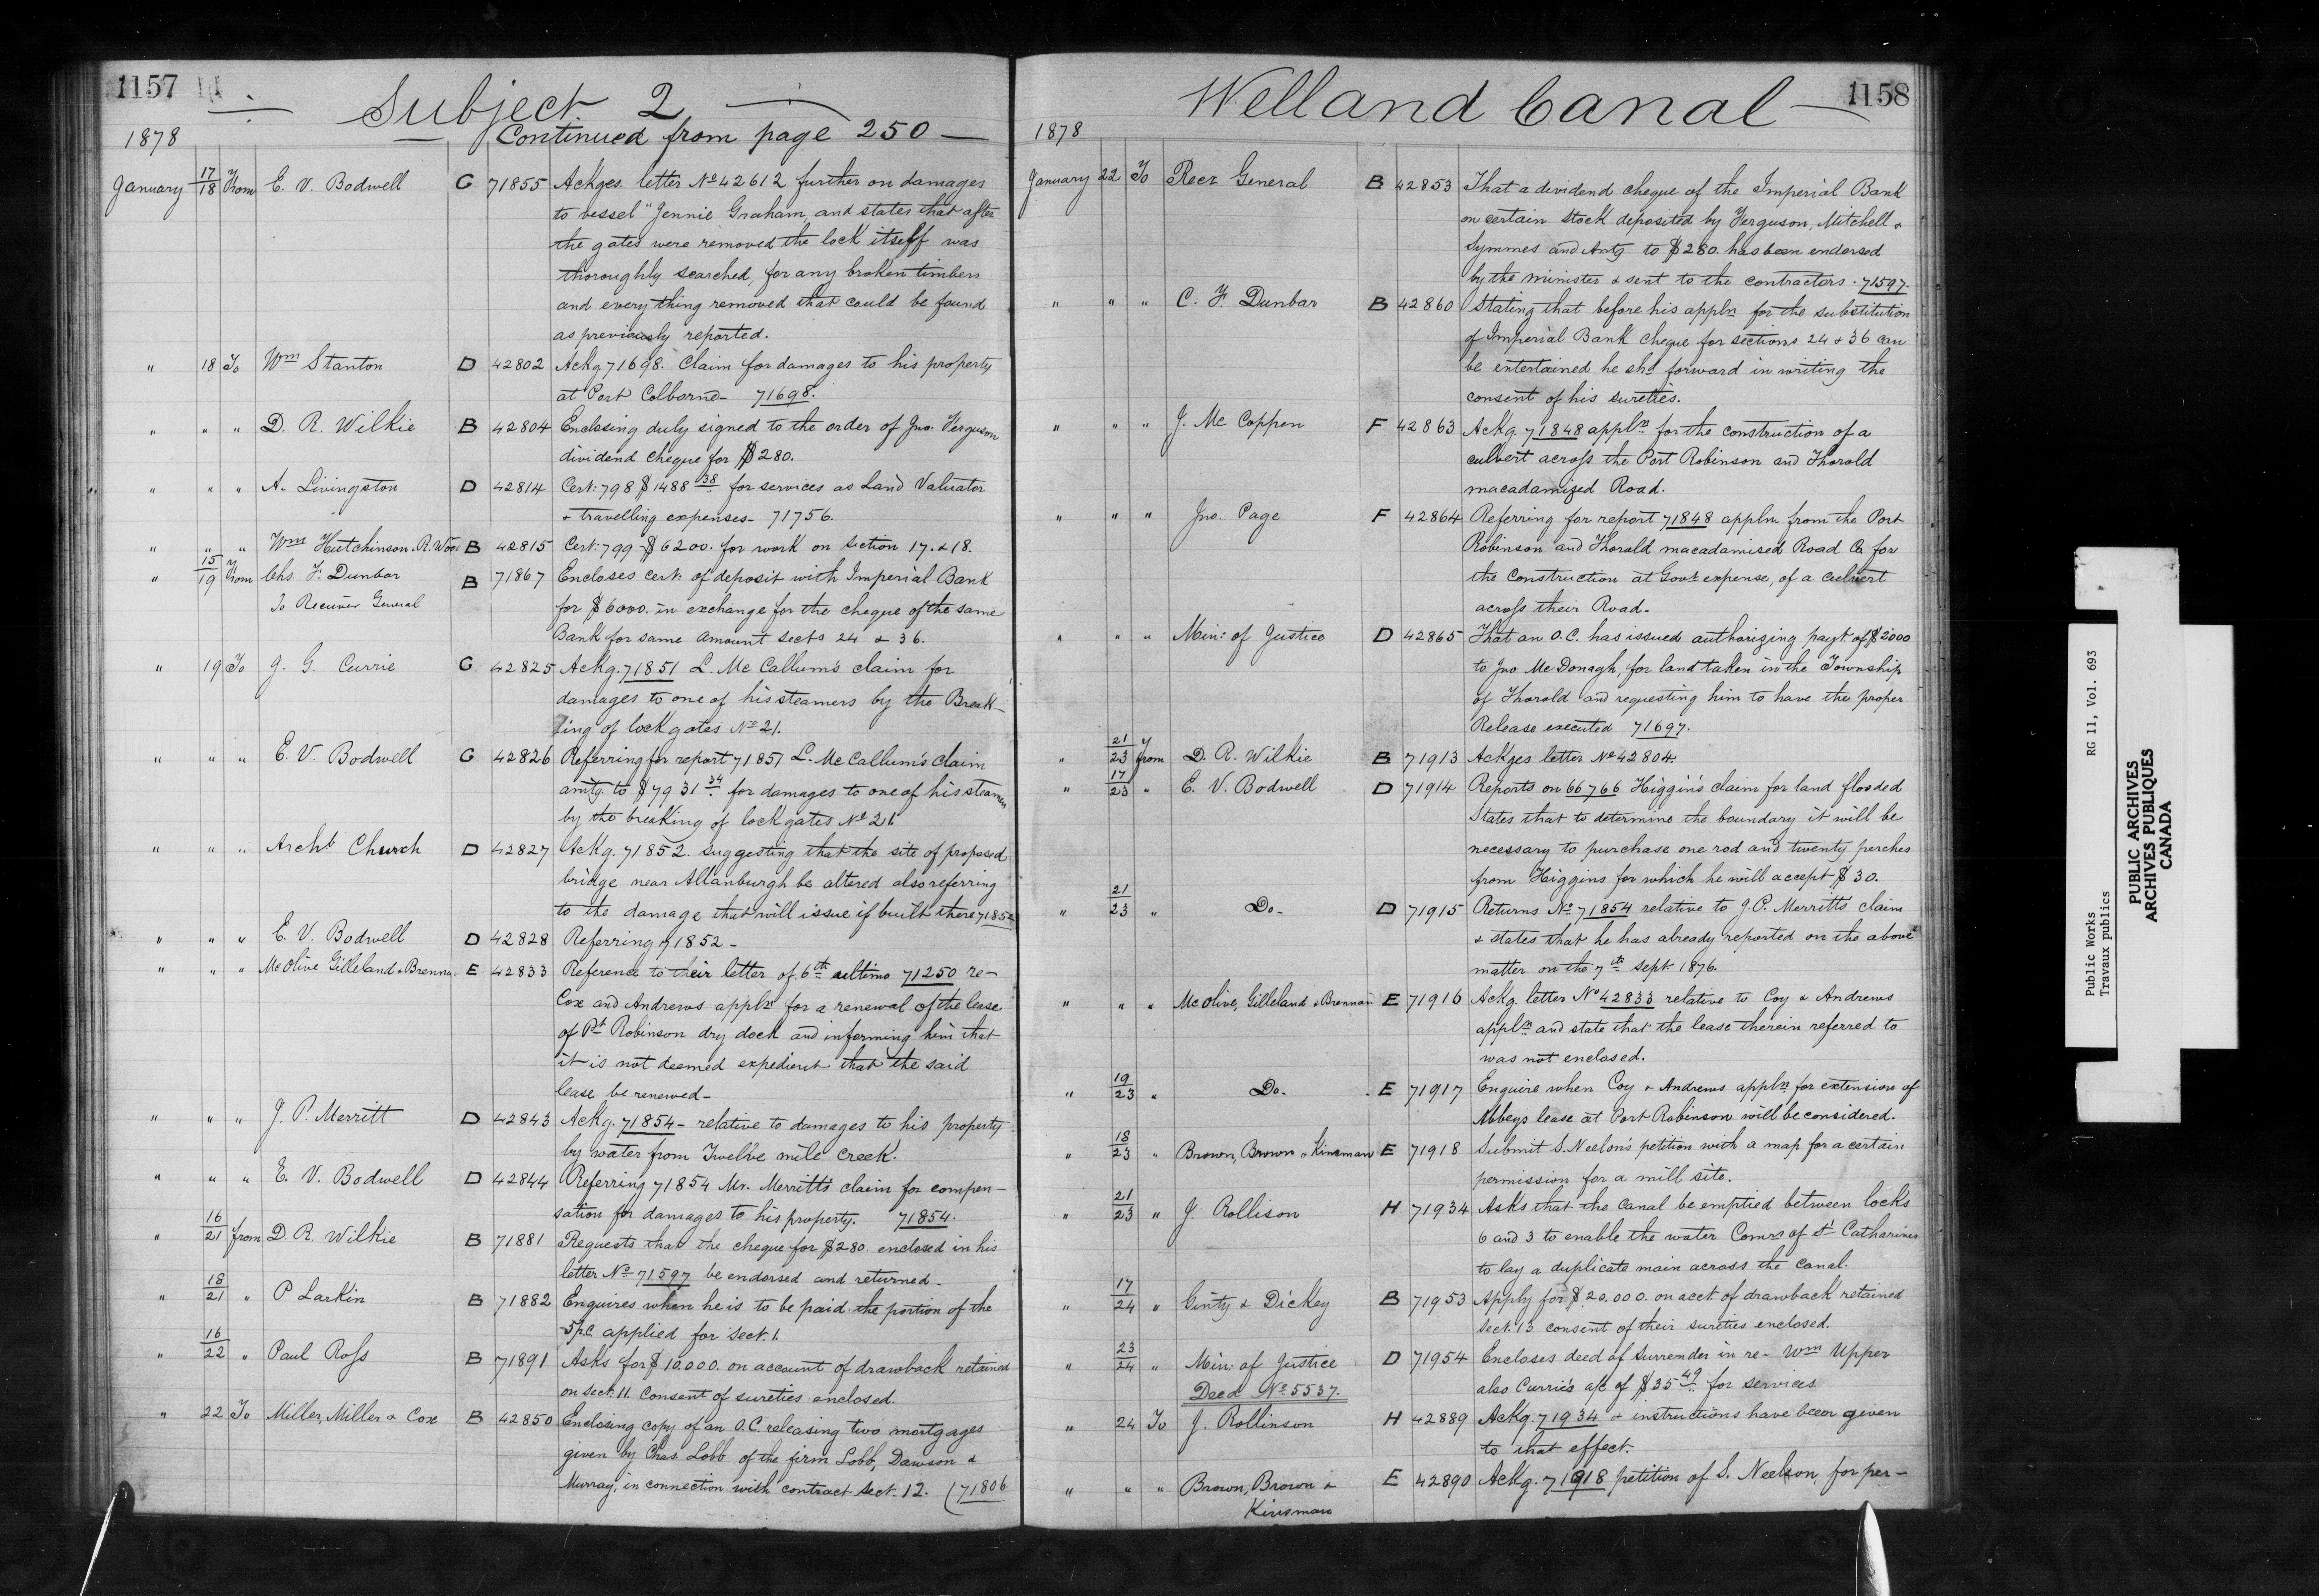 1157
Subject 2
Continued from page 250
1878
January 17/18 From E. V. Bodwell G 71855 Ackges letter No 42612 further on damages
to vessel "Jennie Graham, and states that after
the gates were removed the lock itself was
thoroughly searched, for any broken timbers
and every thing removed that could be found
as previously reported.
" 18 To Wm Stanton D 42802 Ackg 71698. Claim for damages to his property
at Port Colborne- 71698.
" " " D. R. Wilkie B 42804 Enclosing duly signed to the order of Jno. Ferguson
dividend cheque for $280.
" " " A. Livingston D 42814 Cert: 798 $1488 38 for services as Land Valuator
& travelling expenses- 71756.
" " " Wm Hutchinson. R. Wood B 42815 Cert: 799 $6200. for work on Section 17. & 18.
" 15/19 From Chs. F. Dunbar B 71867 Encloses cert: of deposit with Imperial Bank
To Receiver General for $6000. in exchange for the cheque of the same
Bank for same amount sects 24 & 36.
" 19 To J. G. Currie G 42825 Ackg. 71851 L. McCallum's claim for
damages to one of his steamers by the Break-
ing of lock gates No 21.
" " " E. V. Bodwell G 42826 Referring for report 71851 L. McCallum's claim
amtg to $7931 34 for damages to one of his steamers
by the breaking of lock gates No 21.
" " " Archt Church D 42827 Ackg. 71852. suggesting that the site of proposed
bridge near Allanburgh be altered also referring
to the damage that will issue if built there 71852
" " " E. V. Bodwell D 42828 Referring 71852-
" " " McOlive Gilleland & Brennan E 42833 Reference to their letter of 6th ultimo 71250 re-
Cox and Andrews appln for a renewal of the lease
of Pt Robinson dry dock and informing him that
it is not deemed expedient that the said
lease be renewed-
" " " J. P. Merritt D 42843 Ackg. 71854- relative to damages to his property
by water from Twelve mile Creek.
" " " E. V. Bodwell D 42844 Referring 71854 Mr. Merritt's claim for compen-
sation for damages to his property. 71854.
" 16/21 from D. R. Wilkie B 71881 Requests that the cheque for $280. enclosed in his
letter No 71597 be endorsed and returned-
" 18/21 " P Larkin B 71882 Enquires when he is to be paid the portion of the
5 p.c. applied for Sect. 1.
" 16/22 " Paul Ross B 71891 Asks for $10.000. on account of drawback retained
on Sect. 11. Consent of sureties enclosed.
" 22 To Miller, Miller & Cox B 42850 Enclosing copy of an O.C. releasing two mortgages
given by Chas. Lobb of the firm Lobb, Dawson &
Murray, in connection with contract Sect. 12. (71806
Welland Canal
1158
1878
January 22 To Recr General B 42853 That a dividend cheque of the Imperial Bank
on certain stock deposited by Ferguson, Mitchell &
Symmes and Amtg to $280. has been endorsed
by the Minister & sent to the contractors. 71597.
" " " C. F. Dunbar B 42860 Stating that before his appln for the substitution
of Imperial Bank cheque for sections 24 & 36 can
be entertained he shd forward in writing the
consent of his sureties.
" " " J. McCoppen F 42863 Ackg. 71848 appln for the construction of a
culvert across the Port Robinson and Thorold
macadamized Road.
" " " Jno. Page F 42864 Referring for report 71848 appln from the Port
Robinson and Thorold macadamised Road Co for
the construction at Govt expense, of a culvert
across their Road-
" " " Min: of Justice D 42865 That an O.C. has issued authorizing payt of $2000
to Jno McDonagh, for land taken in the Township
of Thorold and requesting him to have the proper
Release executed 71697.
" 21/23 from D. R. Wilkie B 71913 Ackges letter No 42804.
" 17/23 " E. V. Bodwell D 71914 Reports on 66766 Higgin's claim for land flooded
States that to determine the boundary it will be
necessary to purchase one rod and twenty perches
from Higgins for which he will accept $30.
" 21/23 " Do- D 71915 Returns No 71854 relative to J. P. Merritt's claim
& states that he has already reported on the above
matter on the 7th Sept. 1876.
" " " McOlive, Gilleland & Brennan E 71916 Ackg letter No 42833 relative to Coy & Andrews
appln and state that the lease therein referred to
was not enclosed.
" 19/23 " Do. E 71917 Enquire when Coy & Andrews appln for extension of
Abbeys lease at Port Robinson will be considered.
" 18/23 " Brown, Brown & Kinsman E 71918 Submit S. Neelon's petition with a map for a certain
permission for a mill site.
" 21/23 " J. Rollison H 71934 Asks that the canal be emptied between locks
6 and 3 to enable the water Comrs of St Catharines
to lay a duplicate main across the canal.
" 17/24 " Ginty & Dickey B 71953 Apply for $20.000. on acct of drawback retained
Sect. 13 consent of their sureties enclosed.
" 23/24 " Min: of Justice D 71954 Encloses deed of Surrender in re- Wm Upper
Deed No 5537. also Currie's a/c of $35 49 for services.
" 24 To J. Rollinson H 42889 Ackg. 71934 & instructions have been given
to that effect.
" " " Brown, Brown & E 42890 Ackg. 71918 petition of S. Neelon, for per-
Kinsman
Public Works RG 11, Vol. 693
Travaux publics
PUBLIC ARCHIVES
ARCHIVES PUBLIQUES
CANADA